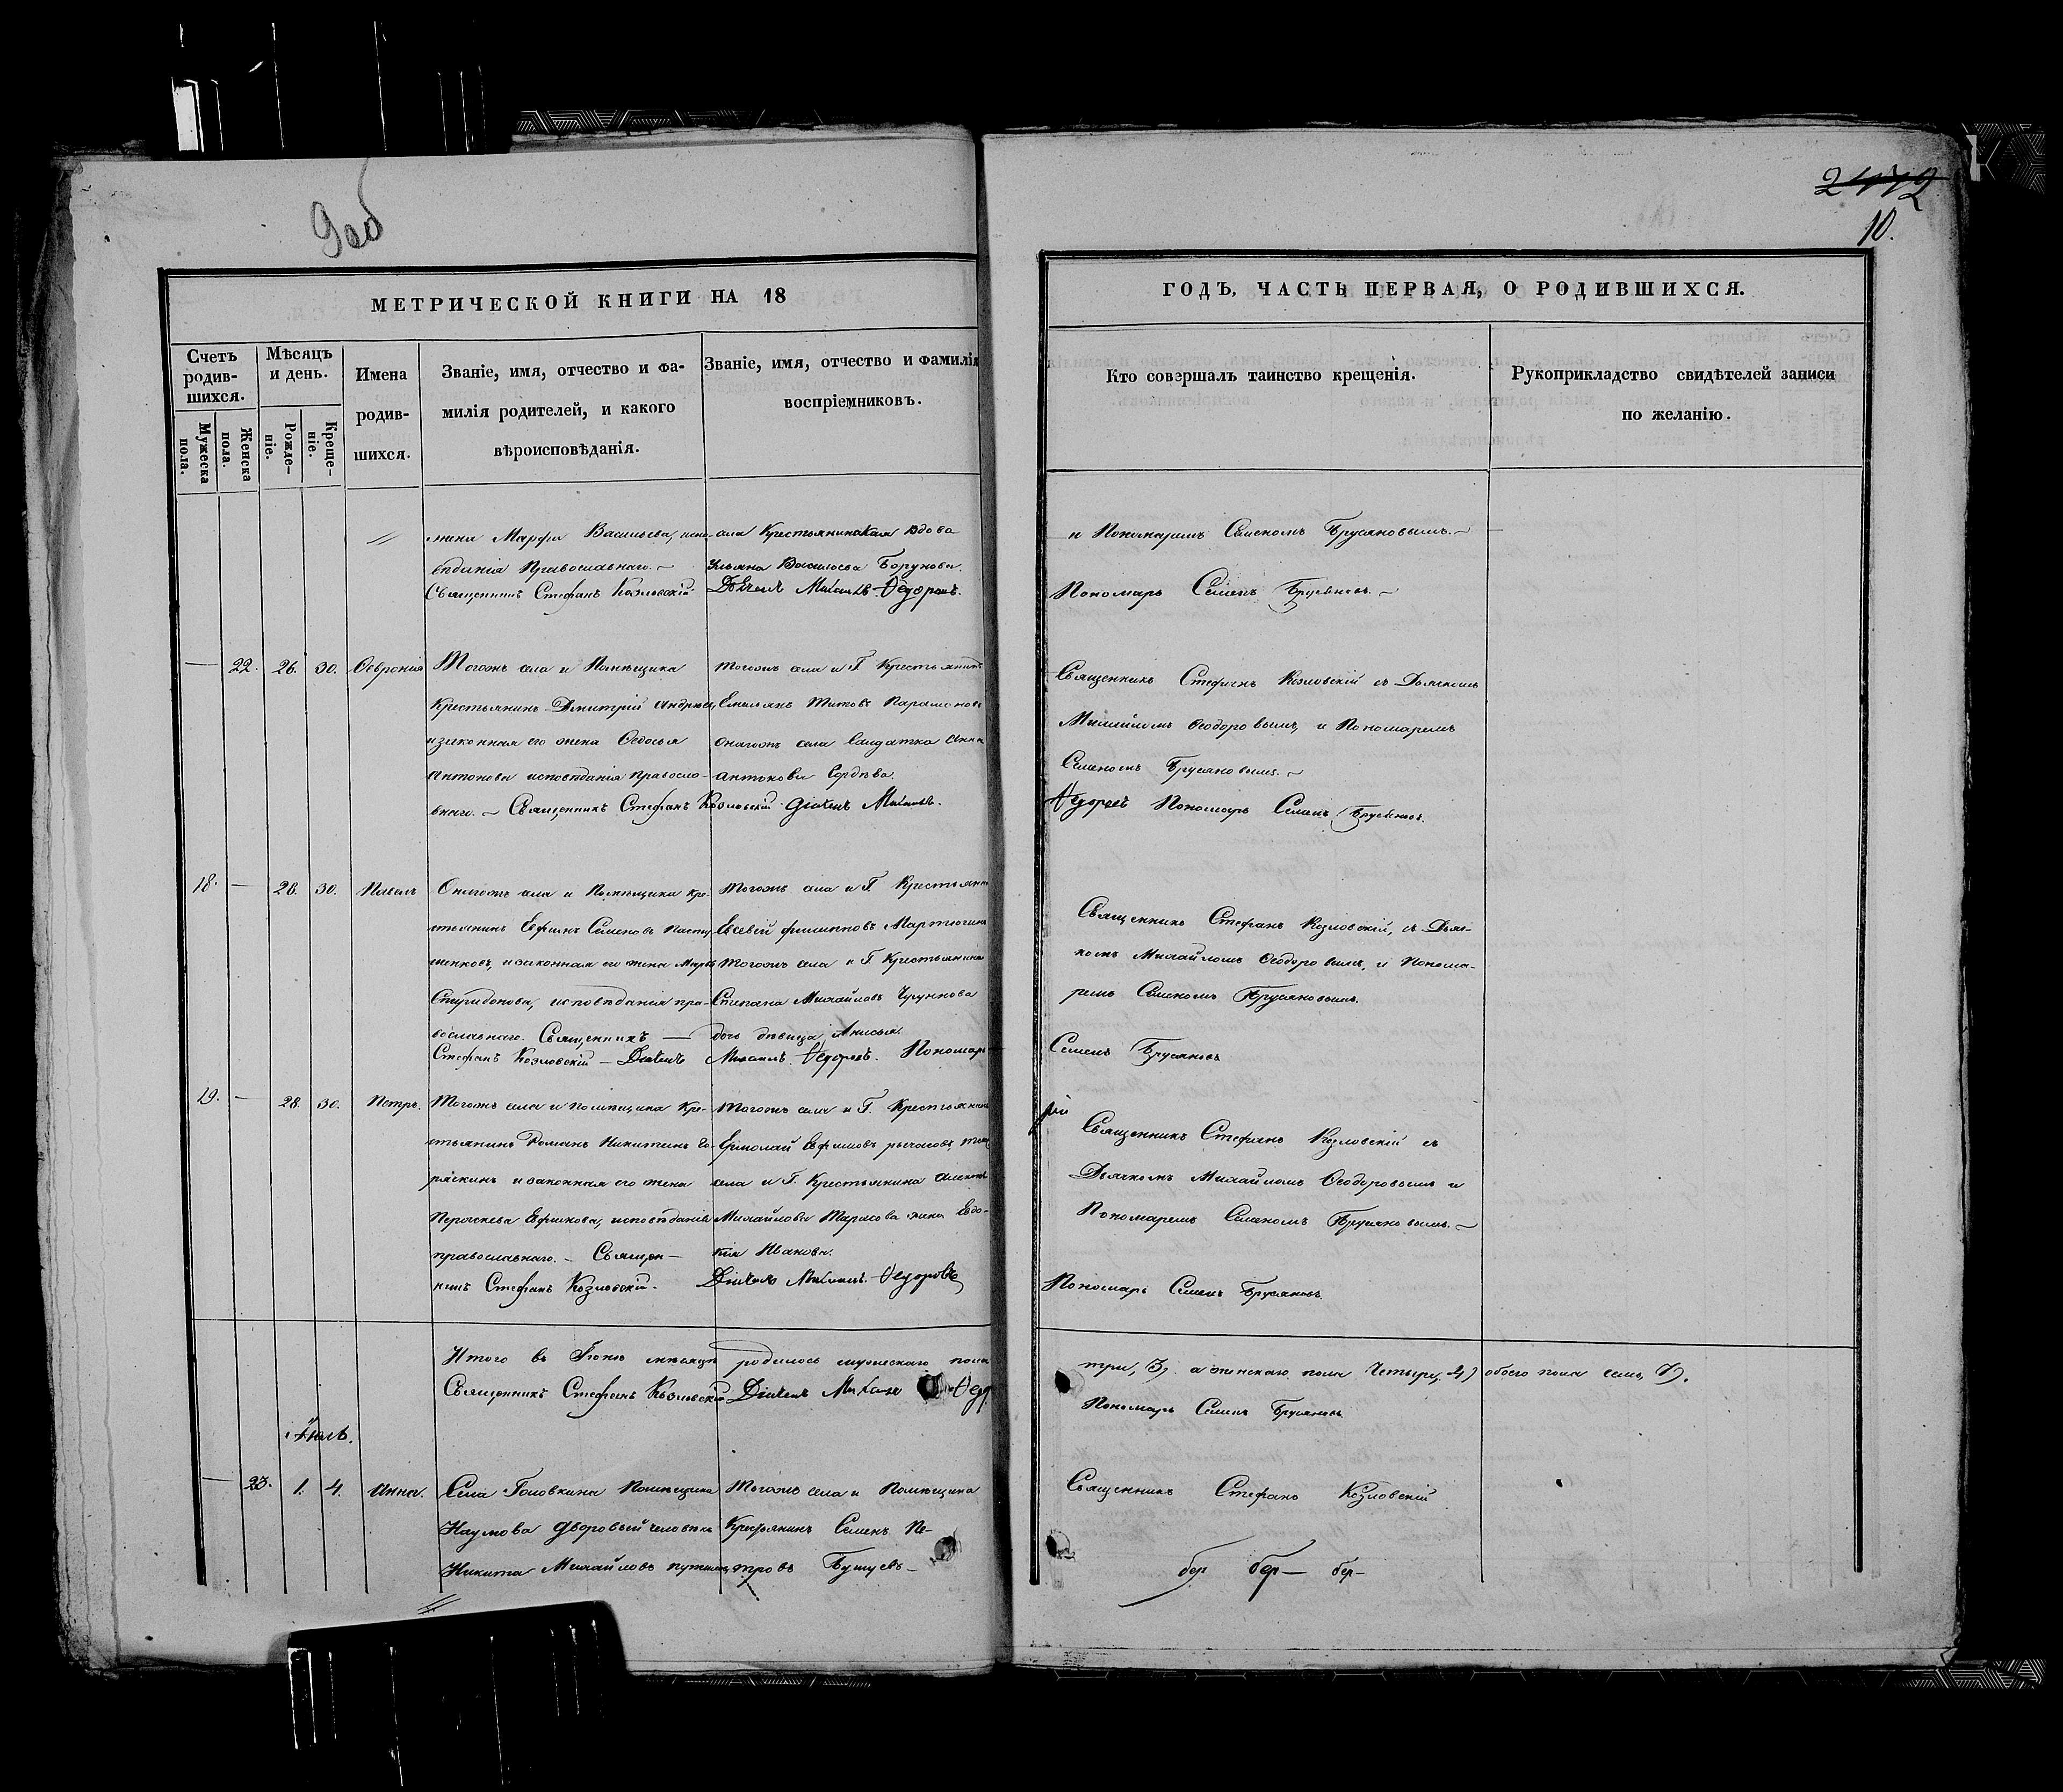 9об
2472
10.
МЕТРИЧЕСКОЙ КНИГИ НА 18
ГОДЪ, ЧАСТЬ ПЕРВАЯ, О РОДИВШИХСЯ.
Счетъ родив-шихся.
Мужеска пола.
Женска пола.
Мѣсяцъ и день.
Рожде-ніе.
Креще-ніе.
Имена родив-шихся.
Званіе, имя, отчество и фа-
милія родителей, и какого
вѣроисповѣданія.
Званіе, имя, отчество и фамилія
воспріемниковъ.
Кто совершалъ таинство крещенія.
Рукоприкладство свидѣтелей записи
по желанію.
жена Марфа Васильева, испо-
вѣданія Православнаго. –
Священникъ Стефанъ Козловскій
села Крестьянинская вдова
Ульяна Васильева Борунова.
Дьячекъ Михаилъ Ѳедоровъ.
и Пономаремъ Семеномъ Брусяновымъ. –
Пономарь Семенъ Брусяновъ. –
— 22. 26. 30. Ѳеврония
Тогожъ села и Помѣщика
Крестьянинъ Дмитрій Андреевъ
и законная его жена Ѳедосья
Антонова исповѣданія Правосла-
внаго. – Священникъ Стефанъ Козловскій
Тогожъ села и Г. Крестьянинъ
Емельянъ Титовъ Парамоновъ
Онагожъ села Салдатка Анна
Антонова
Дiaчекъ Михаилъ
Священникъ Стефанъ Козловскій съ Дьячкомъ
Михайломъ Ѳеодоровымъ, и Пономаремъ
Семеномъ Брусяновымъ. –
Ѳедоровъ Пономарь Семенъ Брусяновъ.
18. — 28. 30. Павелъ
Онагожъ села и Помѣщика Кре-
стьянинъ Ефимъ Семеновъ Пасту-
шенковъ, и законная его жена Марфа
Спиридонова, исповѣданія пра-
вославнаго. Священникъ —
Стефанъ Козловскій –
Тогожъ села и Г. Крестьянинъ
Евсевій Филипповъ Мартюгина
Тогожъ села и Г. Крестьянина
Степана Михайлова Чугунова
дочь дѣвица, Анисья.
Дiaчекъ Михаилъ Ѳедоровъ. Пономарь
Священникъ Стефанъ Козловскій, съ Дьяч-
комъ Михайломъ Ѳеодоровымъ, и Понома-
ремъ Семеномъ Брусяновымъ.
Семенъ Брусяновъ
19. — 28. 30. Петръ.
Тогожъ села и помѣщика Кре-
стьянинъ Романъ Никитинъ Го-
ряскинъ и законная его жена
исповѣданія
православнаго. – Священ-
никъ Стефанъ Козловскій.
Тогожъ села и Г. Крестьянинъ
Ермолай Ефимовъ
села и Г. Крестьянина
Михайлова Тарасова жена Евдо-
кія Иванова.
Дiaчекъ Михаилъ Ѳедоровъ
Священникъ Стефанъ Козловскій съ
Дьячкомъ Михайломъ Ѳеодоровымъ и
Пономаремъ Семеномъ Брусяновымъ. –
Пономарь Семенъ Брусяновъ.
Итого въ Іюнѣ мѣсяцѣ родилось мужескаго пола
три, 3) а женскаго пола Четыре, 4) обоего пола семь, 7).
Священникъ Стефанъ Козловскій Дiaчекъ Михаилъ Ѳедо
Пономарь Семенъ Брусяновъ
Іюль.
— 23. 1. 4. Анна.
Села Головкина Помѣщика
Наумова Дворовый человѣкъ
Никита Михайловъ
Тогожъ села и Помѣщика
Крестьянинъ Семенъ Пе-
тровъ Бушуевъ –
Священникъ Стефанъ Козловскій